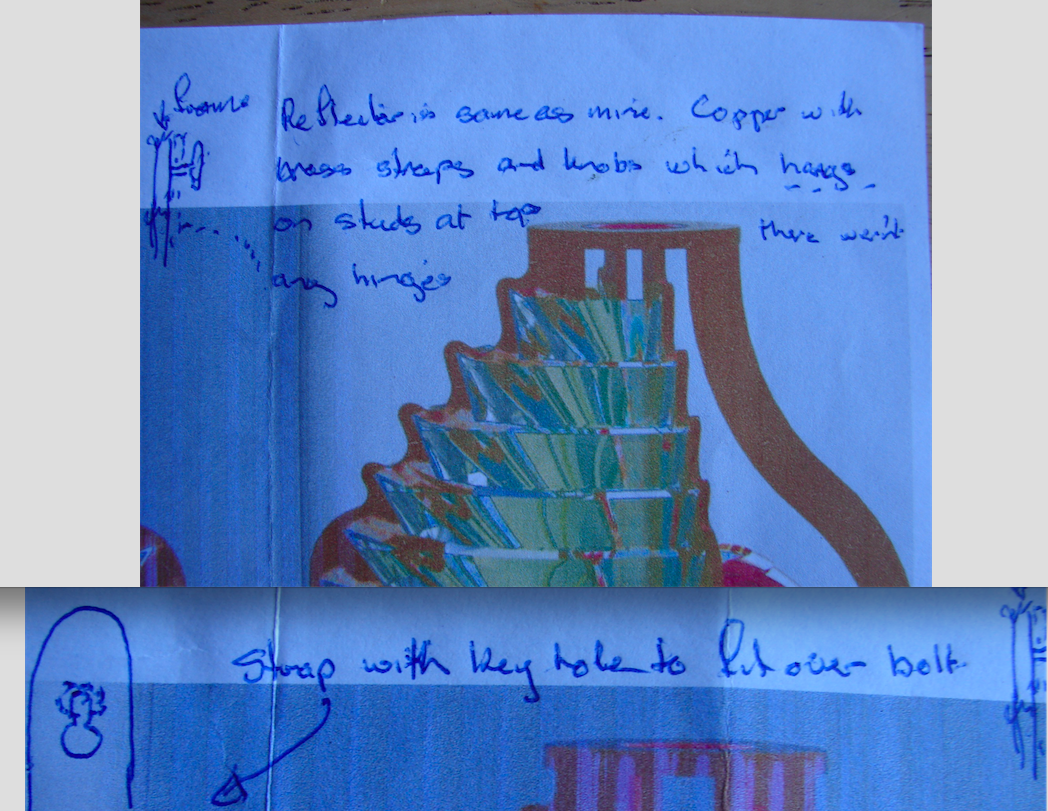 frame
Reflector is same as mine. Copper with
brass straps and knobs which hangs
on studs at top
there weren't
any hinges
Strap with key hole to fit over bolt